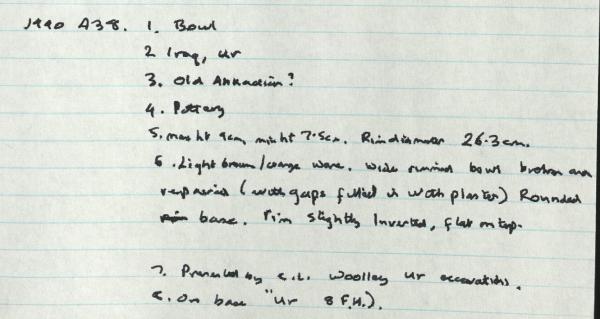 1990 A38. 1. Bowl
2 Iraq, Ur
3. Old Akkadian?
4. Pottery
5. max ht 9cm, min ht 7.5cm. Rim diameter 26.3cm.
6. Light brown/orange ware. Wide rimmed bowl broken and
repaired (with gaps filled in with plaster) Rounded
base. rim slightly inverted, flat on top.
7. Presented by C.L. Woolley Ur excavations.
8. On base "Ur 8 F.H.).